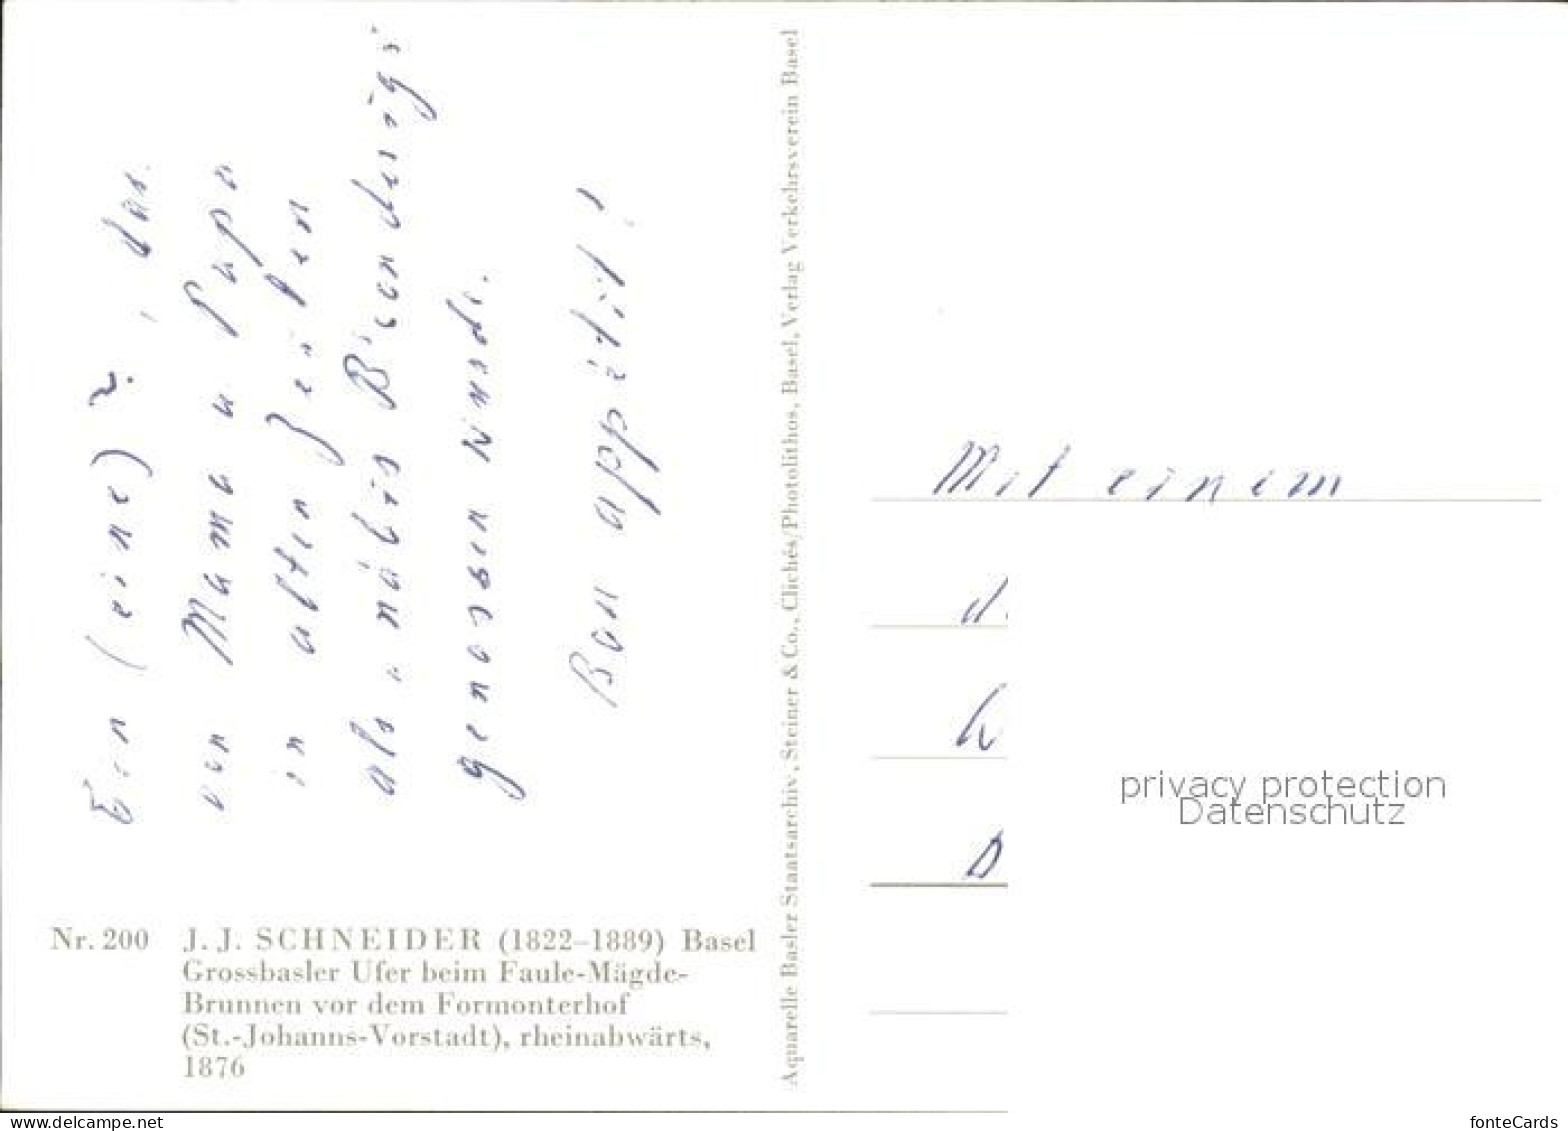 Ein (eine) ?, das
von Mama u Papa
in alten Zeiten
als
genossen
Bon appétit!
Nr. 200 J. J. SCHNEIDER (1822–1889) Basel
Grossbasler Ufer beim Faule-Mägde-
Brunnen vor dem Formonterhof
(St.-Johanns-Vorstadt), rheinabwärts,
1876
Aquarelle Basler Staatsarchiv, Steiner & Co., Clichés/Photolithos, Basel, Verlag Verkehrsverein Basel
Mit einem
privacy protection
Datenschutz
www.delcampe.net
fonteCards